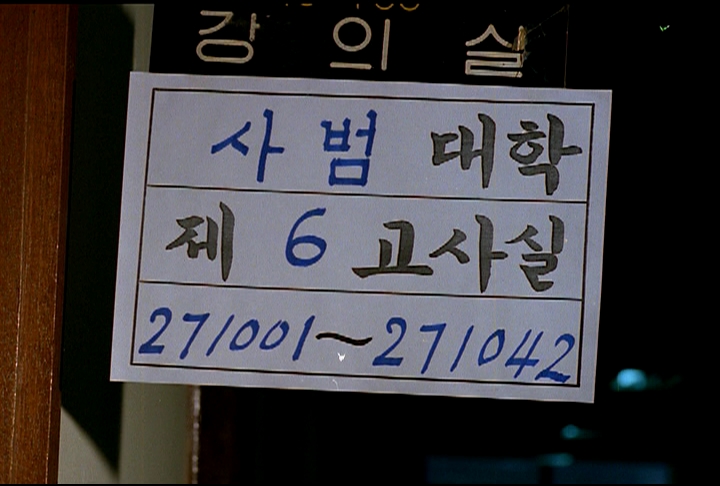 강 의 실
사 범 대학
제 6 고사실
271001~271042